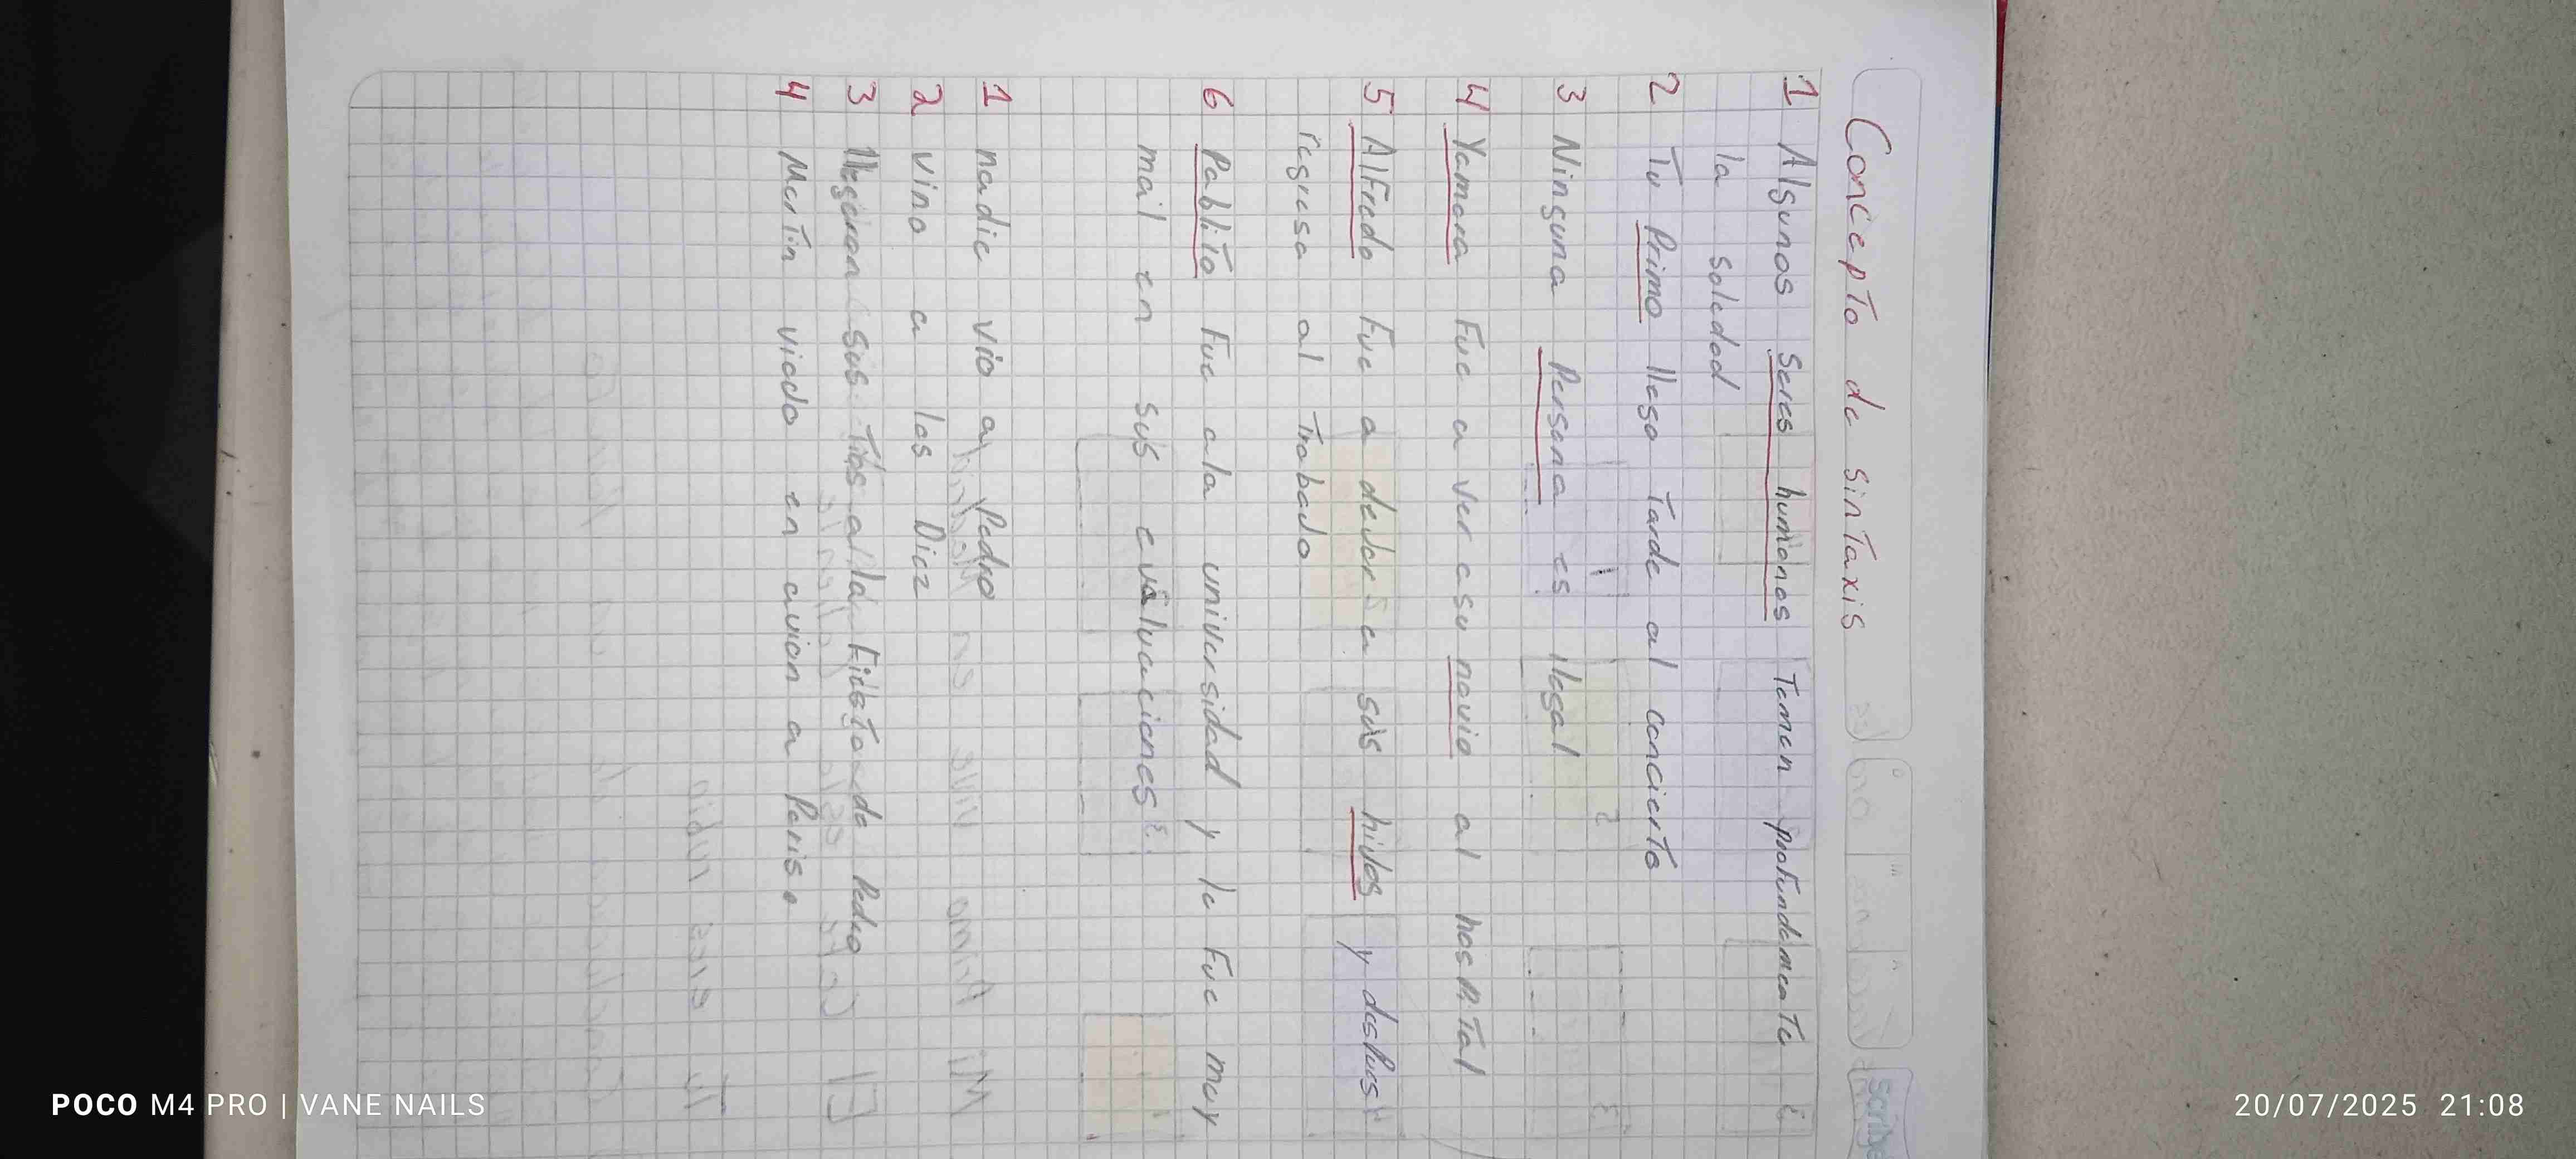 Concepto de sintaxis
1 Algunos seres humanos Temen profundamente
la soledad
2 Tu Primo llego Tarde al concierto
3 Ninguna Persona es Ilegal
4 Yamara Fue a ver asu novio al hospital
5 Alfredo Fue a dedar a sus hidos y despues
regresa al Trabado
6 Pablito Fue ala universidad y le Fue muy
mal en sus evaluaciones
1 nadie vio a Pedro
2 vino a las Diez
3 llegaron sus Tios a la Fiesta de Pedro
4 Martin viado en avion a Paris.
Scribe
POCO M4 PRO | VANE NAILS
20/07/2025 21:08